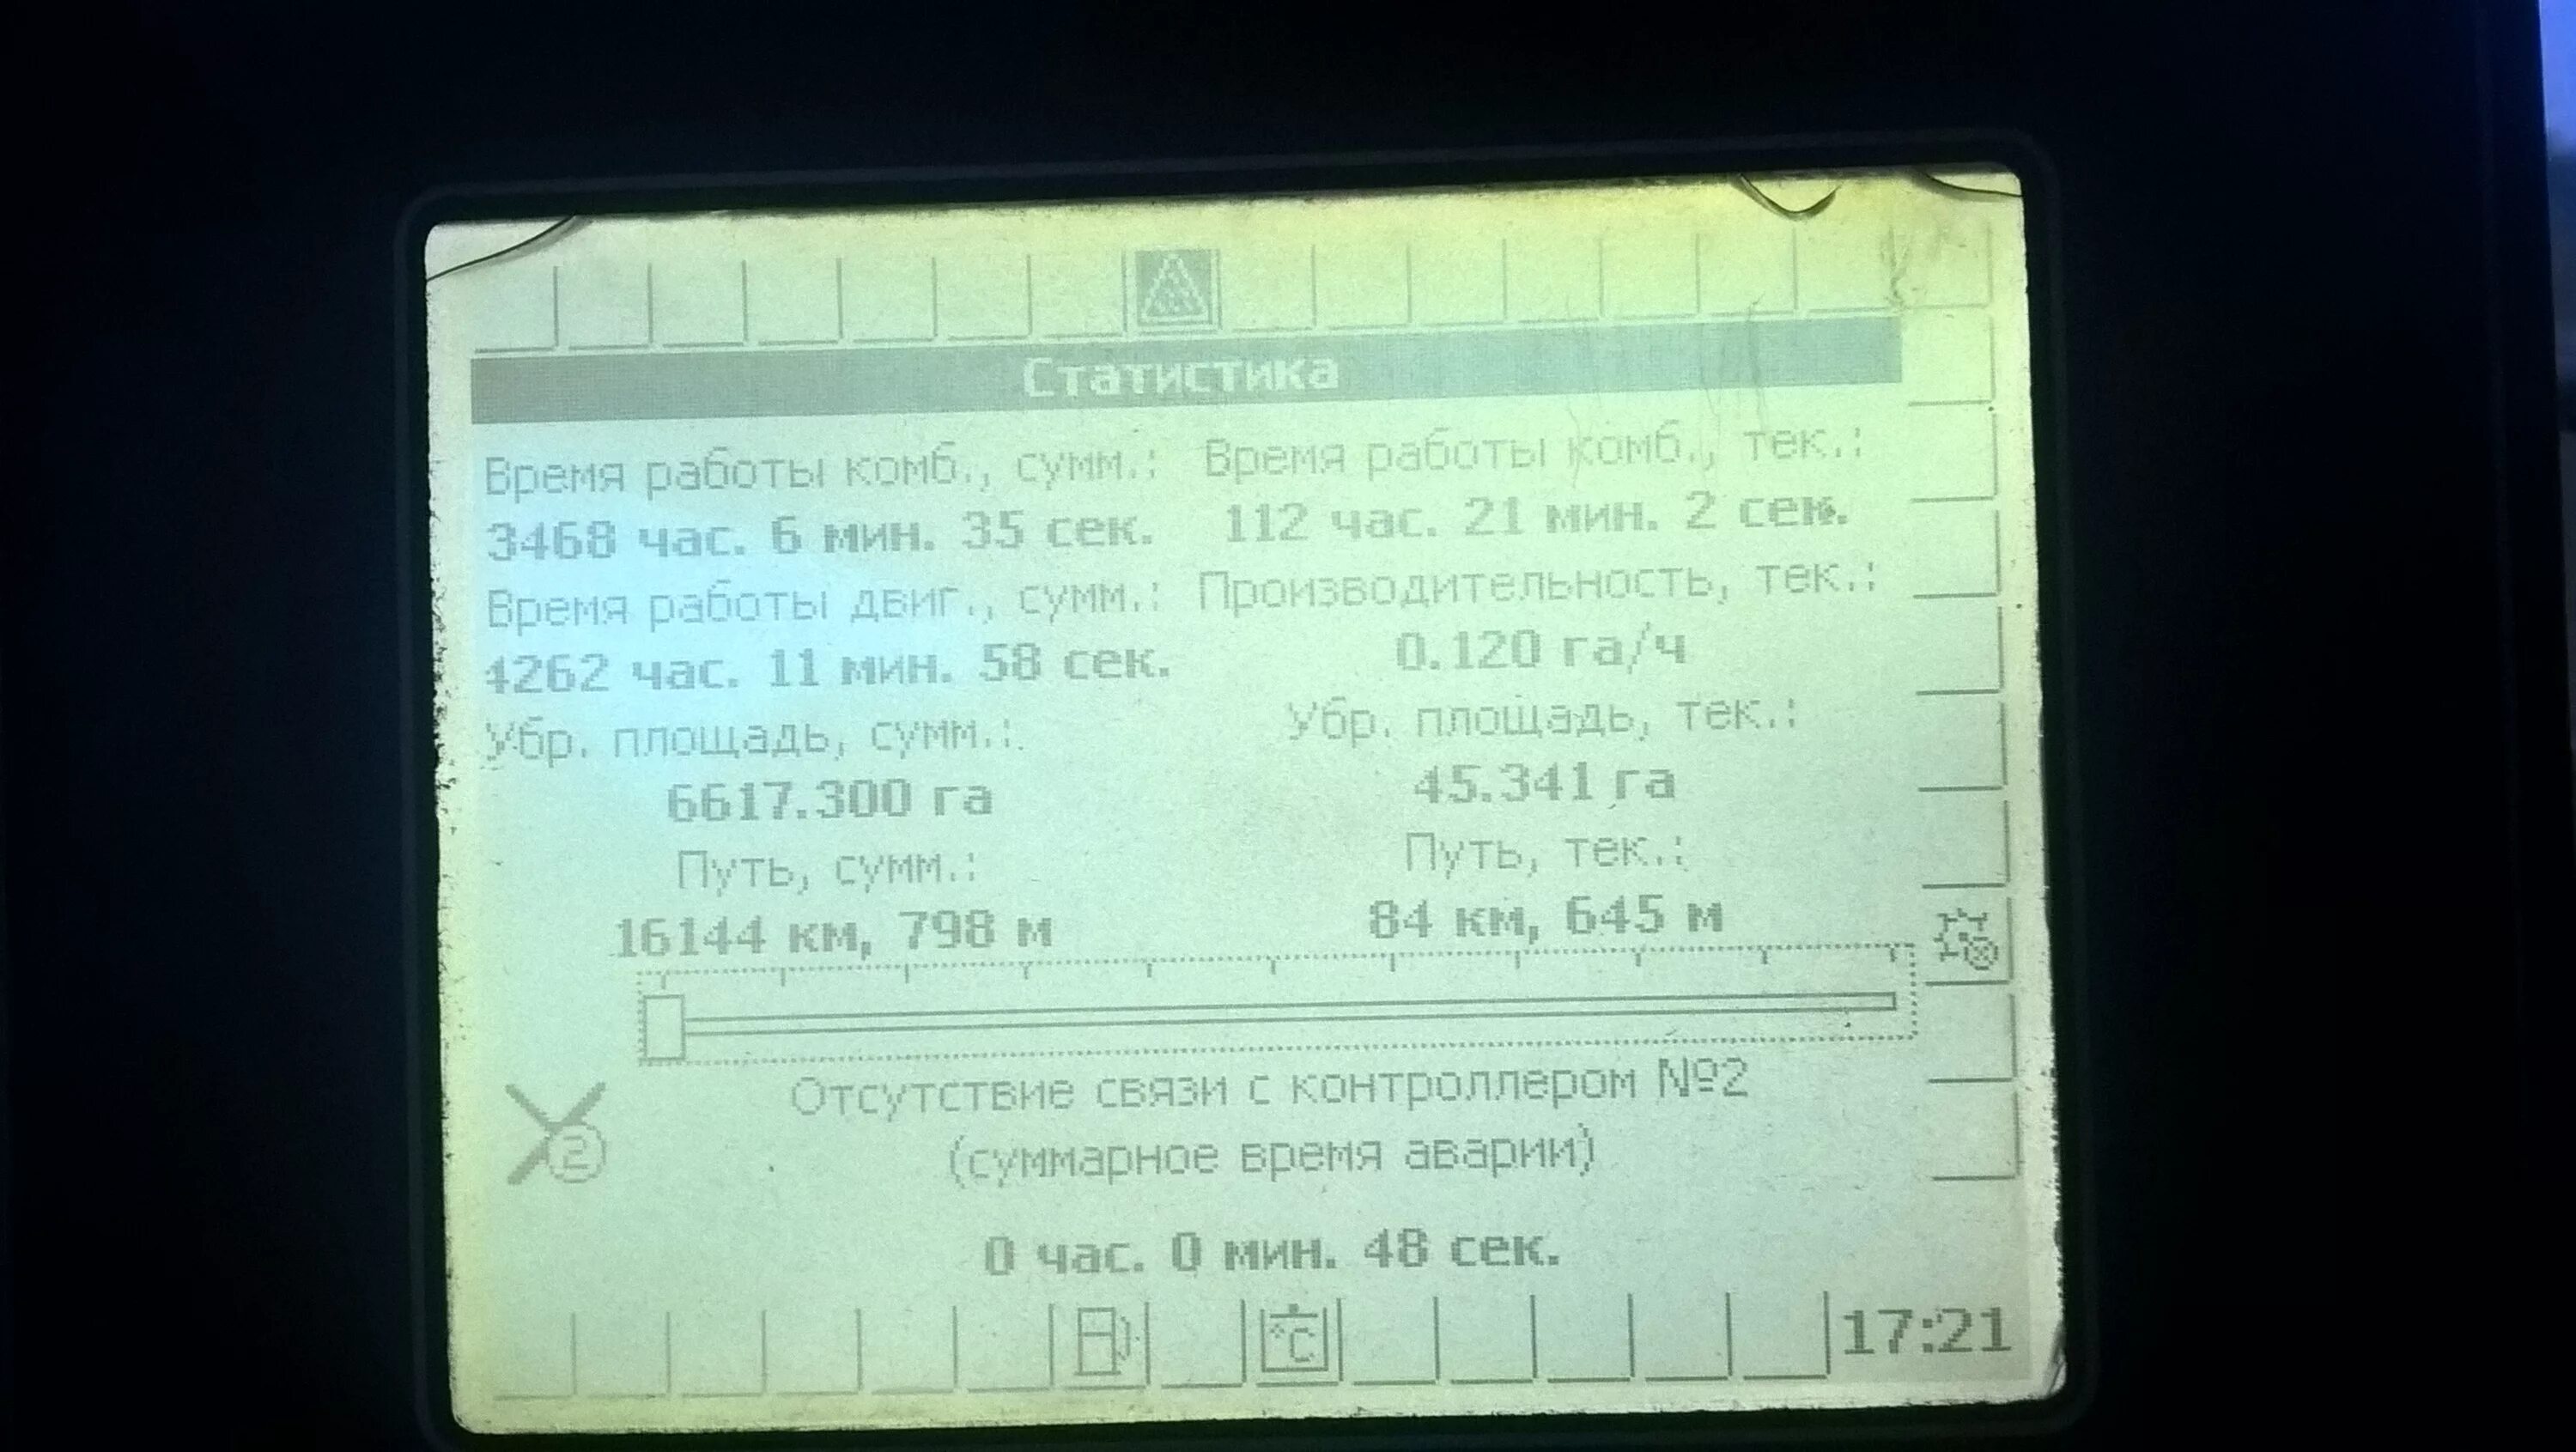 Статистика
Время работы комб., сумм.: Время работы комб., тек.:
3468 час. 6 мин. 35 сек. 112 час. 21 мин. 2 сек.
Время работы двиг., сумм.: Производительность, тек.:
4262 час. 11 мин. 58 сек. 0.120 га/ч
Убр. площадь, сумм.: Убр. площадь, тек.:
6617.300 га 45.341 га
Путь, сумм.: Путь, тек.:
16144 км, 798 м 84 км, 645 м
Отсутствие связи с контроллером №2
2 (суммарное время аварии)
0 час. 0 мин. 48 сек.
°C 17:21